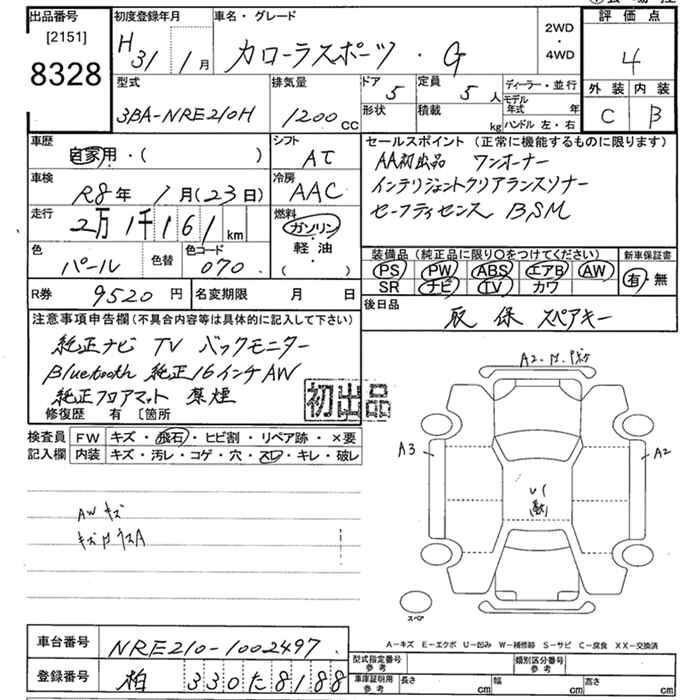 出品番号
[2151]
8328
初度登録年月
H31 1月
車名・グレード
カローラスポーツ・G
2WD・4WD
評価点
4
外装 内装
C B
型式
3BA-NRE210H
排気量
1200CC
ドア 5
形状
定員 5人
積載 kg
ディーラー・並行
モデル年式 年
ハンドル 左・右
車歴
自家用・( )
シフト
AT
車検
R8年 1月(23日)
冷房
AAC
走行
2万1千161km
燃料
ガソリン
軽・油
( ・ )
色
パール
色替
色コード
070
R券 9520円
名変期限 月 日
セールスポイント(正常に機能するものに限ります)
AA初出品 ワンオーナー
インテリジェントクリアランスソナー
セーフティセンス BSM
装備品(純正品に限り○をつけてください)
PS PW ABS エアB AW
SR ナビ TV カワ
新車保証書
有・無
後日品
取 保 スペアキー
注意事項申告欄(不具合内容等は具体的に記入して下さい)
純正ナビ TV バックモニター
Bluetooth 純正16インチAW
純正フロアマット 禁煙
修復歴 有 〔箇所
初出品
検査員 FW キズ・飛石・ヒビ割・リペア跡・×要
記入欄 内装 キズ・汚レ・コゲ・穴・スレ・キレ・破レ
AWキズ
A3
A2
スペア
A－キズ E－エクボ U－凹み W－補修跡 S－サビ C－腐食 XX－交換済
車台番号 NRE210-1002497
登録番号 柏 330 た 8188
型式指定番号 参考
類別区分番号 参考
車庫証明用 参考
長さ cm 幅 cm 高さ cm